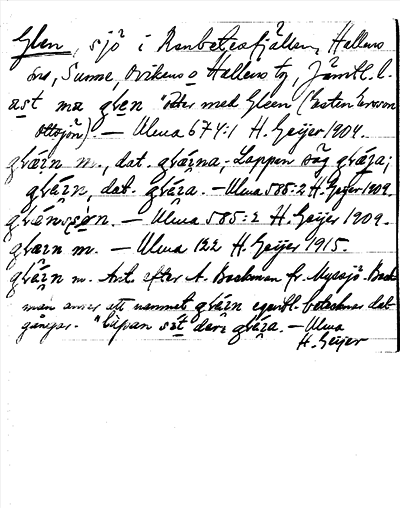 Glen, sjö i Renbetesfjällen, Hallens
sns, Sunne, Ovikens o Hallens tg, Jämtl. l.
ast ma glen "öster med Gleen (Östen Ersson
Ottsjön). — Ulma 674:1 H. Geijer 1904.
gværn m., dat. gvärna, Lappen såg gvära;
gvärn, dat. gvära. — Ulma 585:2 H. Geijer 1909.
— Ulma 585:2 H. Geijer 1909.
gværn m. — Ulma 122 H. Geijer 1915.
gvärn m. Ant. efter A. Backman fr. Myssjö. Back-
man anser att namnet gvärn egentl. betecknar dal-
gången. "Lapan sat dær gvära. — Ulma
H. Geijer